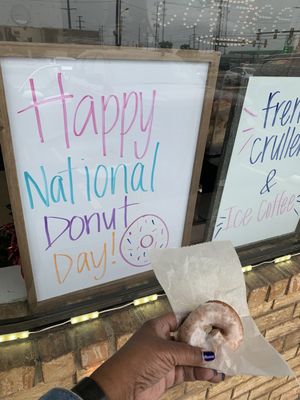 Happy
National
Donut
Day!
French
Cruller
&
Ice Coffee